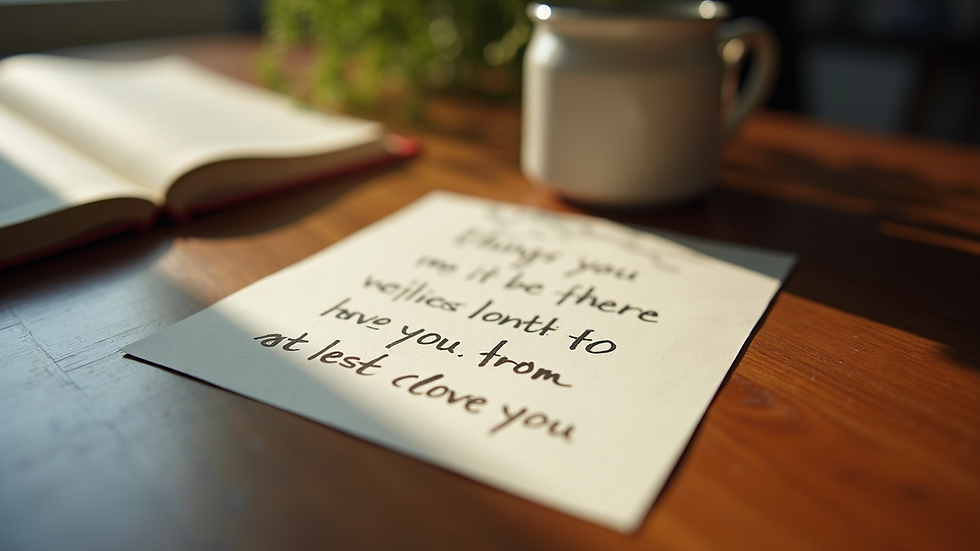 things you
me it be there
vejlies lontt to
hove you. from
at lest clove you